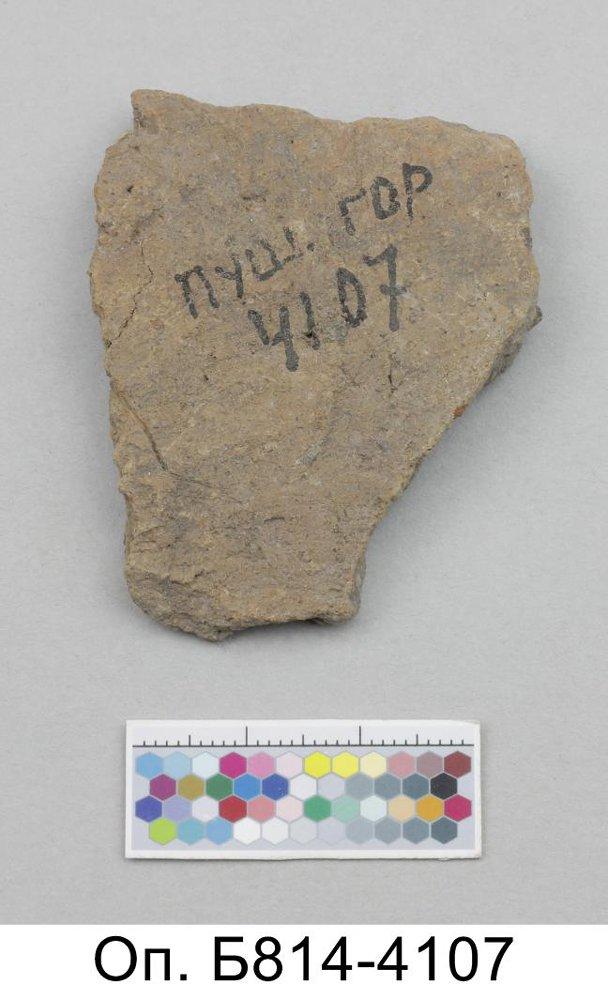 ПУШ. ГОР
4107
Оп. Б814-4107